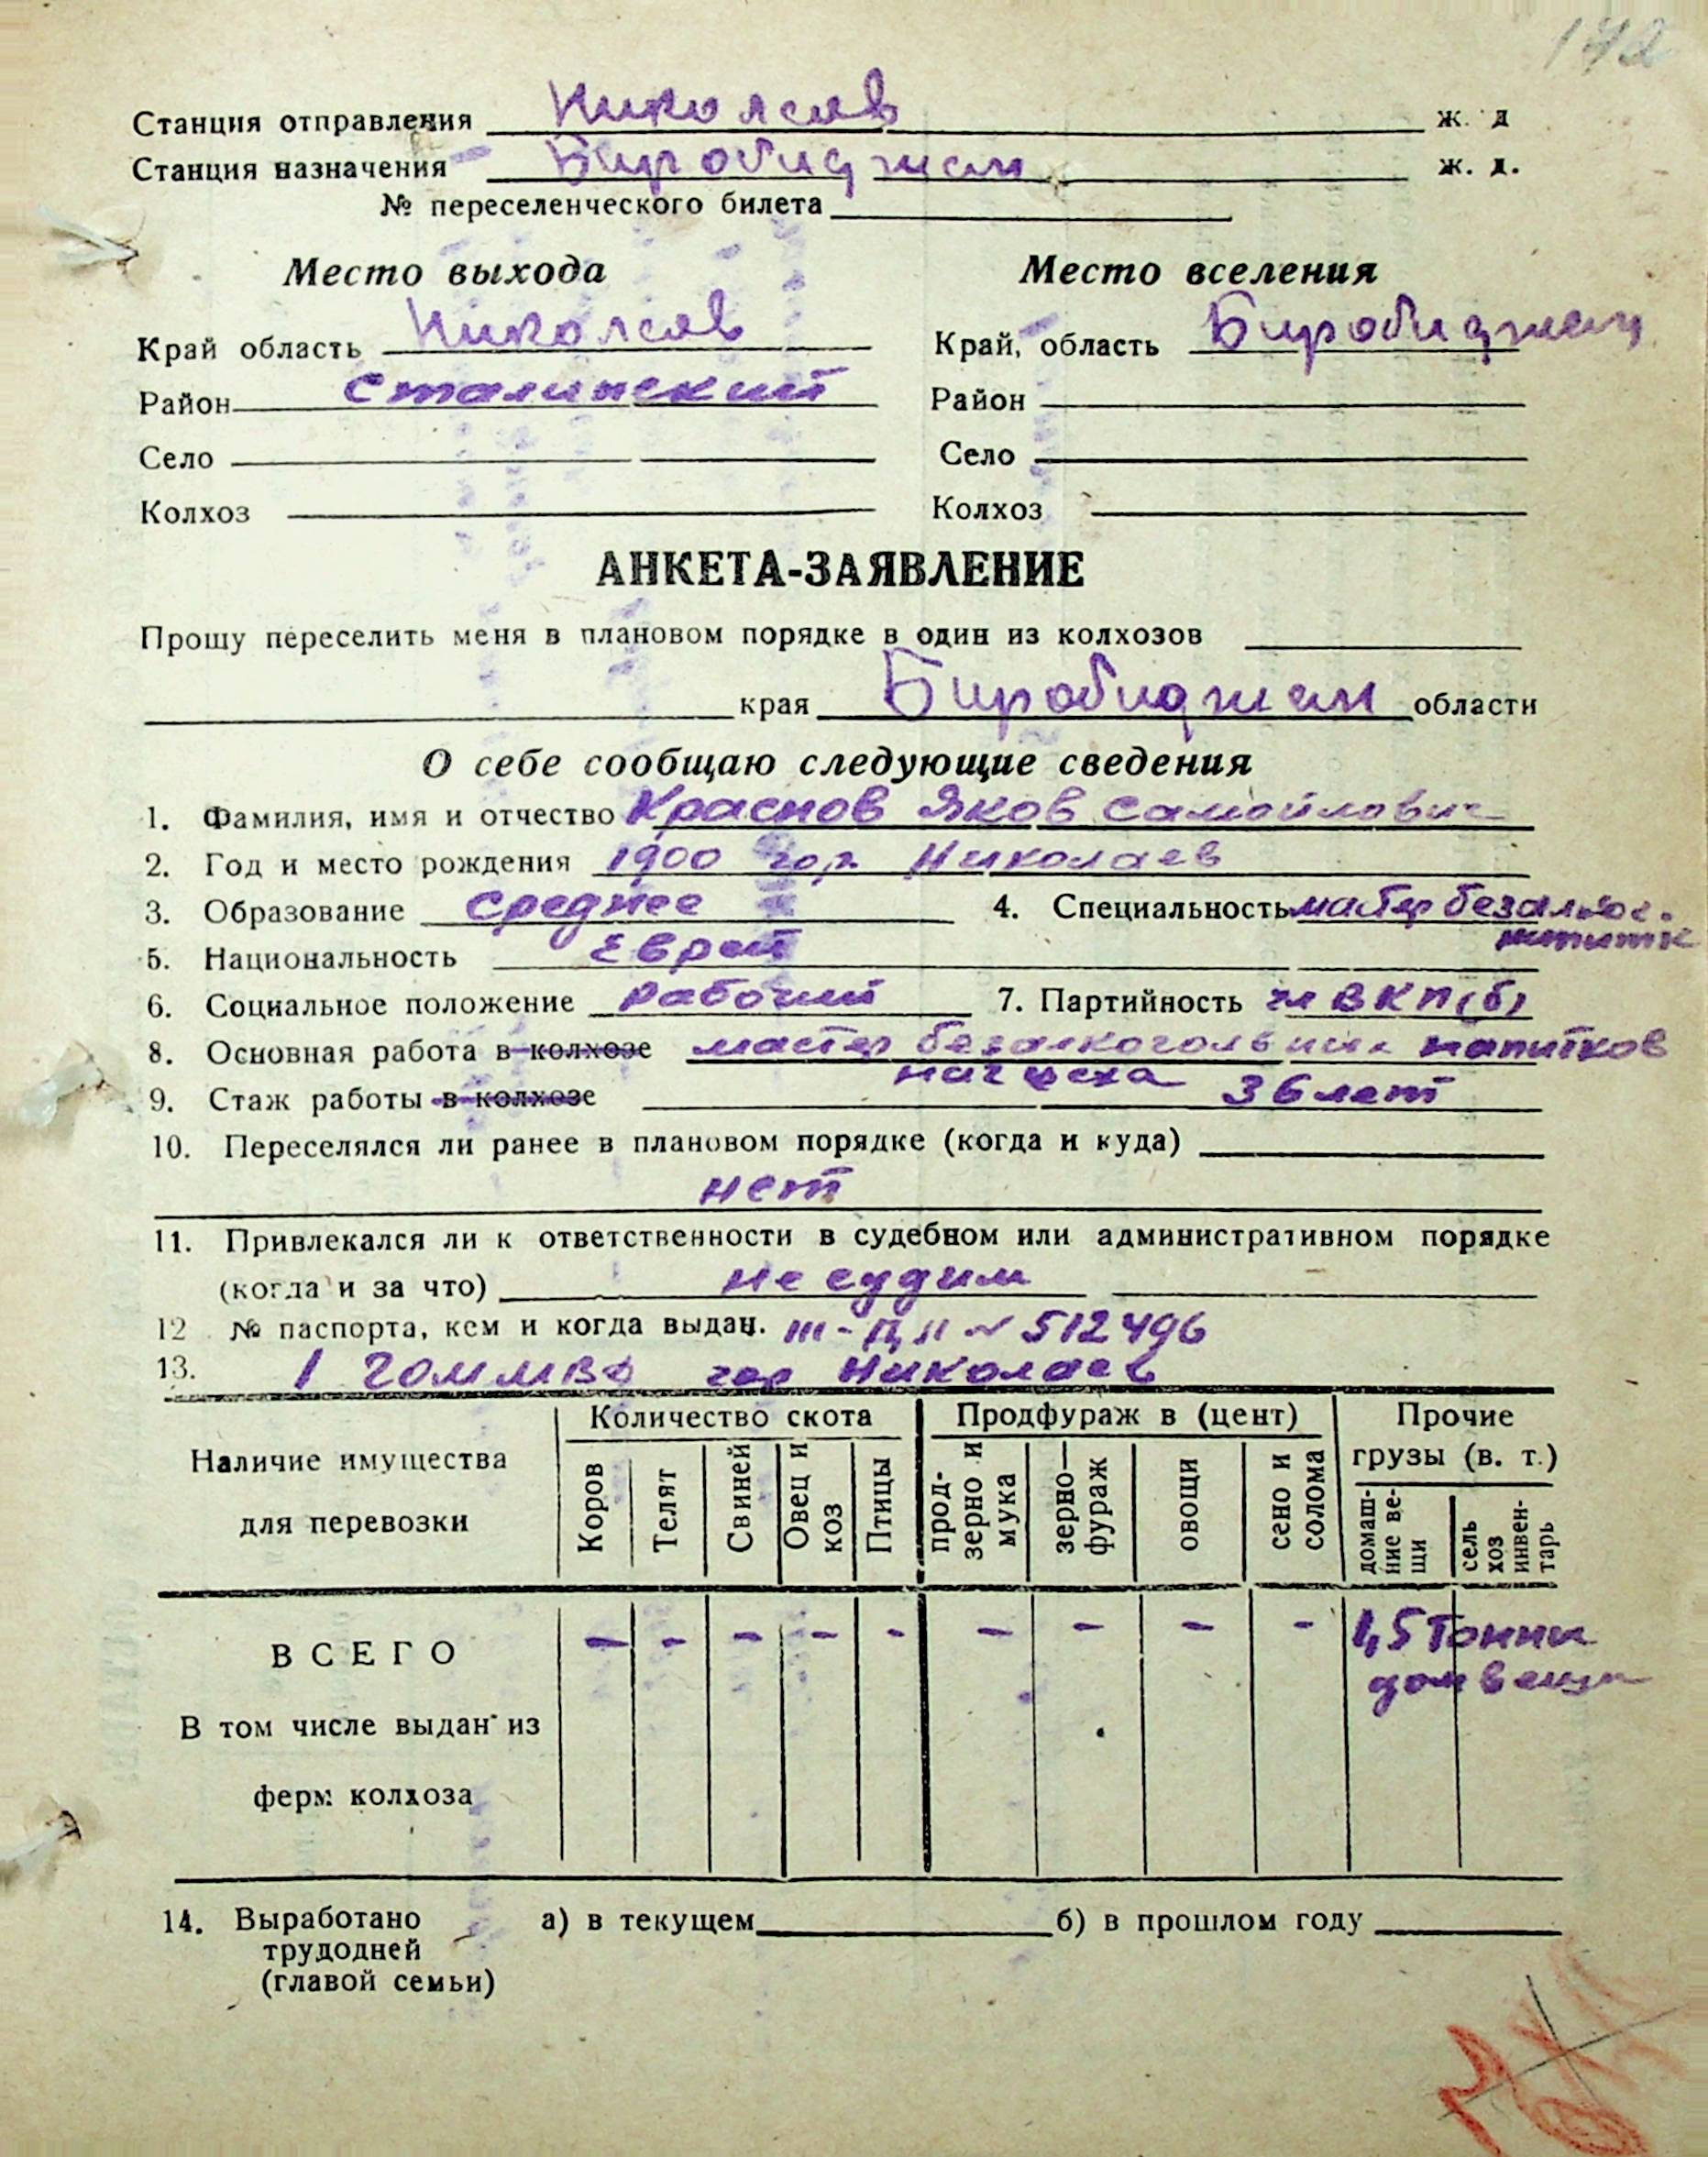 142
Станция отправления Николаев ж. д
Станция назначения Биробиджан ж. д.
№ переселенческого билета
Место выхода Место вселения
Край область Николаев Край, область Биробиджан
Район Сталинский Район
Село Село
Колхоз Колхоз
АНКЕТА-ЗАЯВЛЕНИЕ
Прошу переселить меня в плановом порядке в один из колхозов
края Биробиджан области
О себе сообщаю следующие сведения
1. Фамилия, имя и отчество Краснов Яков Самойлович
2. Год и место рождения 1900 гор. Николаев
3. Образование среднее 4. Специальность мастер безалког.
напитк
5. Национальность Еврей
6. Социальное положение рабочий 7. Партийность чл ВКП(б)
8. Основная работа в колхозе мастер безалкогольных напитков
нач цеха
9. Стаж работы в колхозе 36 лет
10. Переселялся ли ранее в плановом порядке (когда и куда)
нет
11. Привлекался ли к ответственности в судебном или административном порядке
(когда и за что) не судим
12 № паспорта, кем и когда выдан. III - № 512496
13. 1 ГОМ МВД гор Николаев
Наличие имущества для перевозки
Количество скота Продфураж в (цент) Прочие грузы (в. т.)
Коров Телят Свиней Овец и коз Птицы прод-зерно и мука зерно-фураж овощи сено и солома домаш-ние ве-щи сель хоз инвен-тарь
ВСЕГО - - - - - - - - - 1,5 Тонны
дом вещи
В том числе выдан из
ферм колхоза
14. Выработано а) в текущем б) в прошлом году
трудодней
(главой семьи)